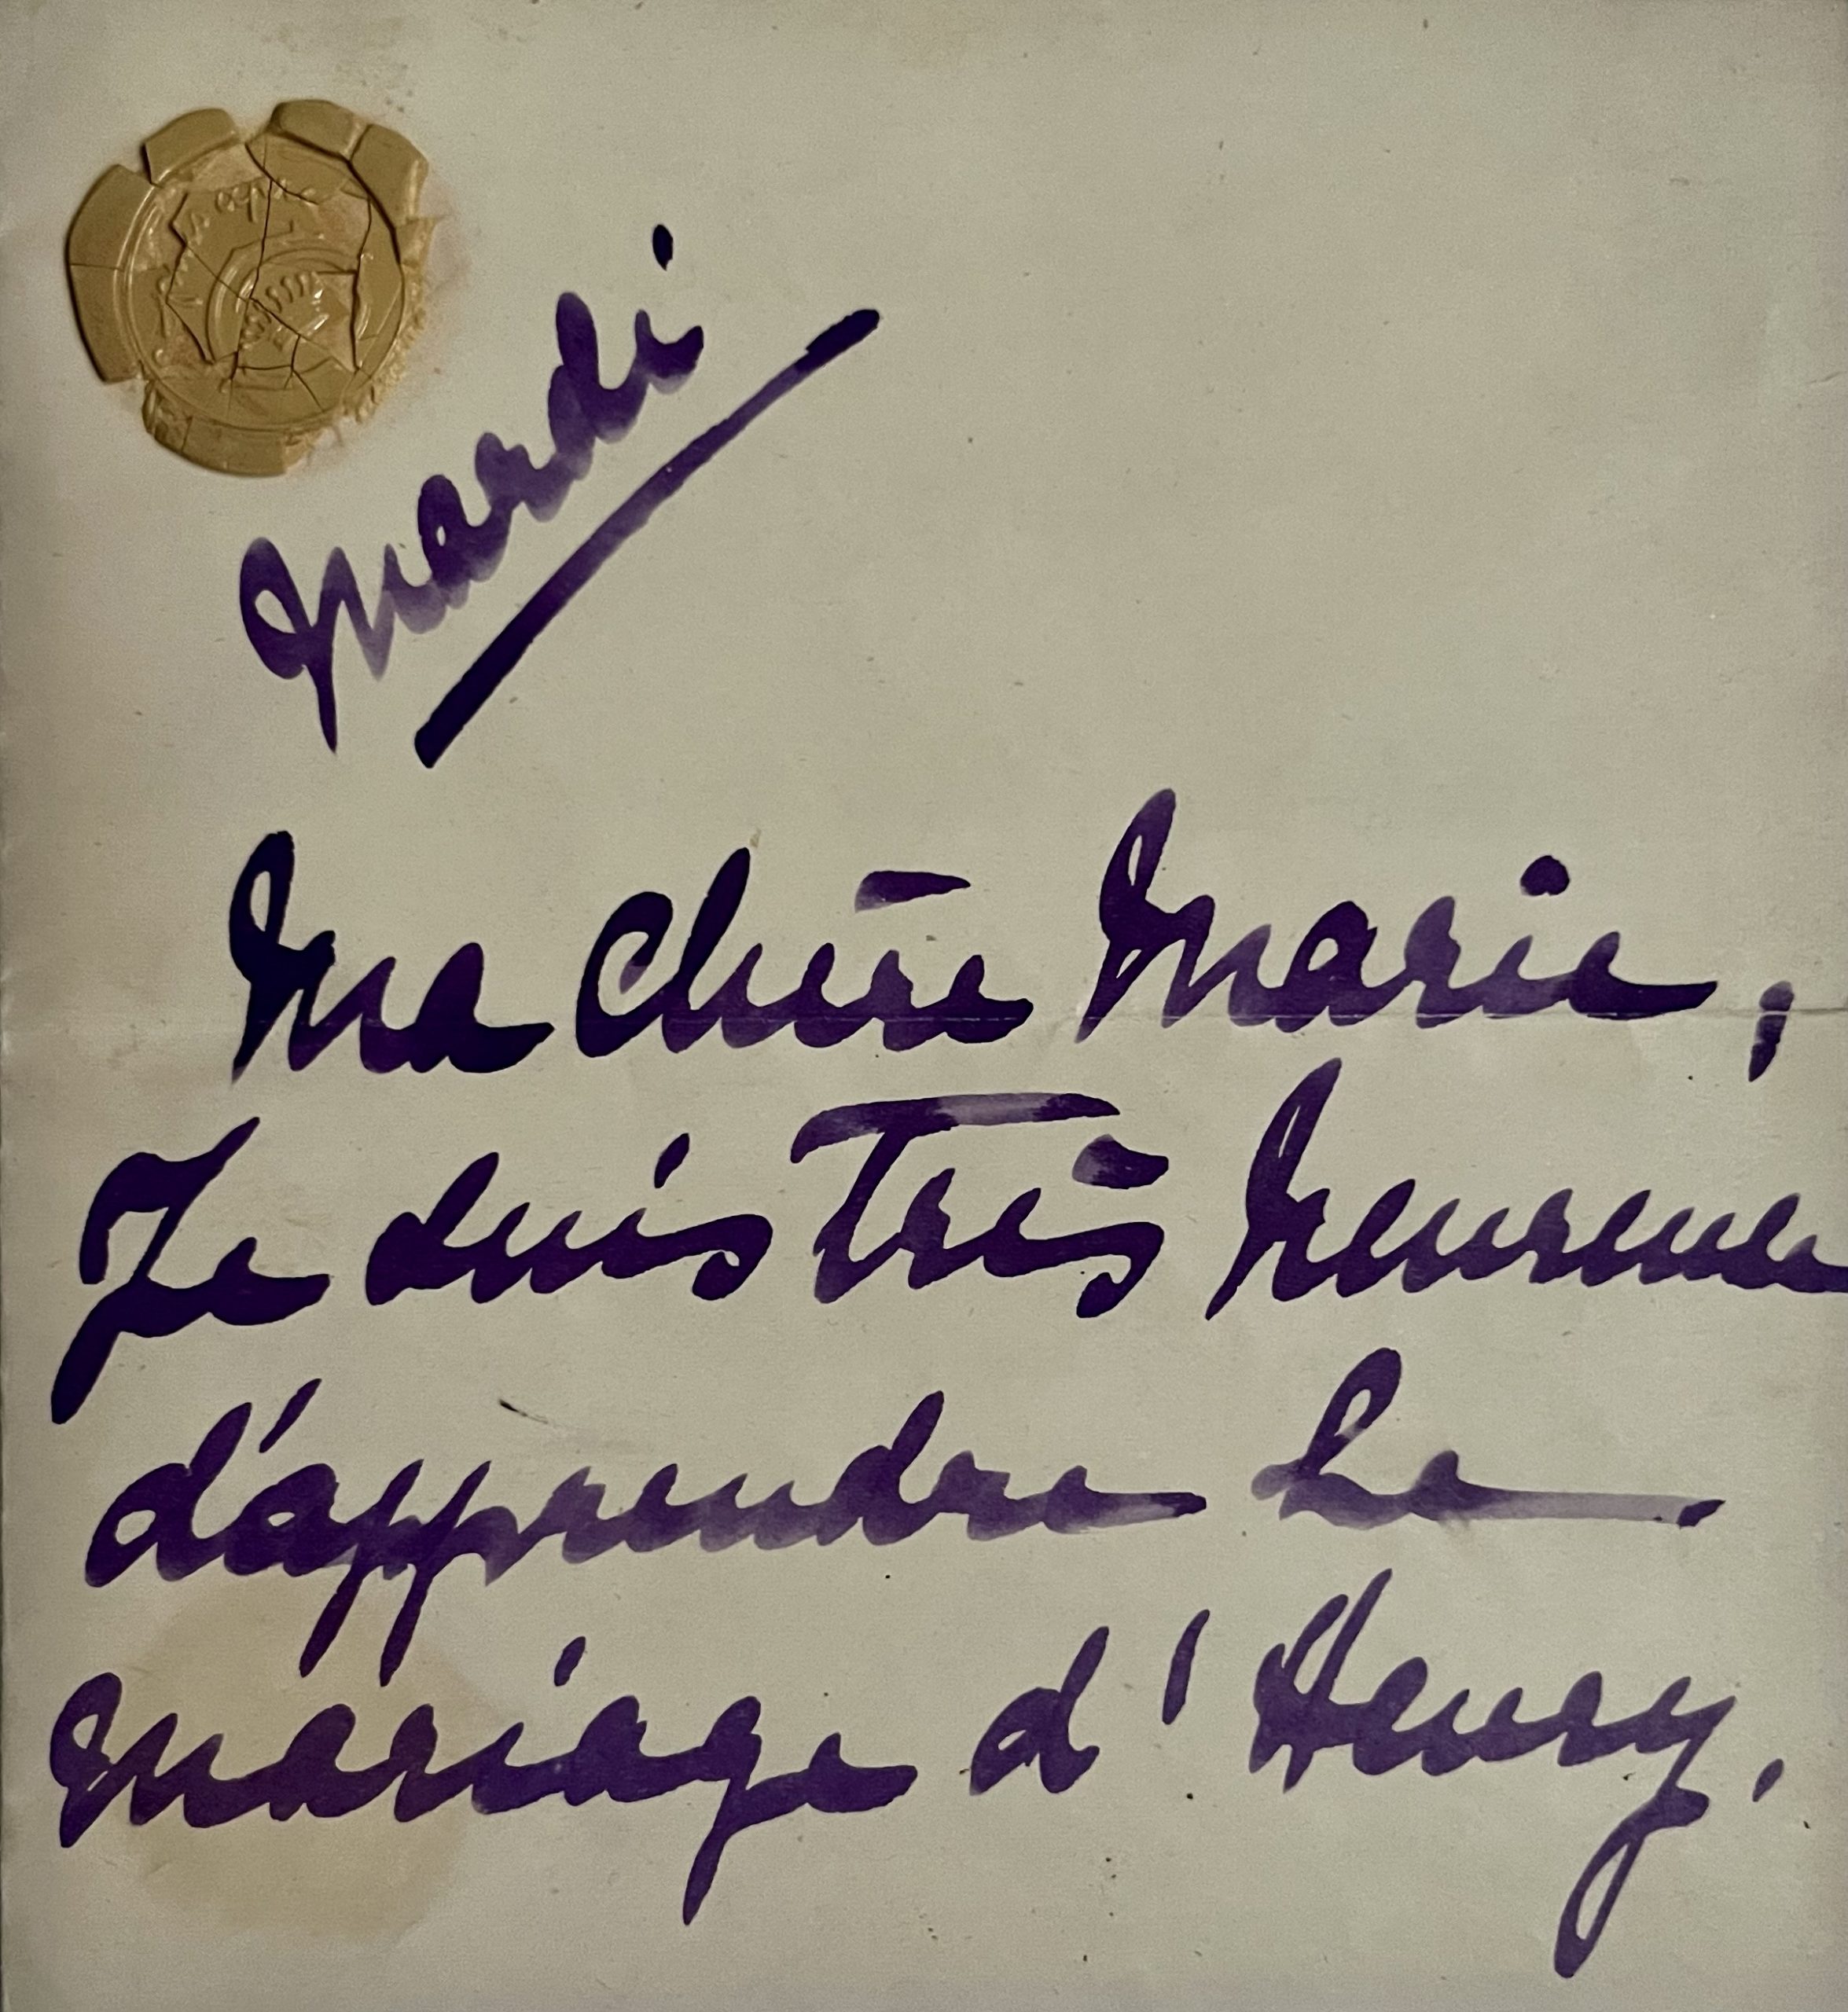 Mardi
Ma Chère Marie,
Je suis Très heureuse
d'apprendre Le
mariage d'Henry.